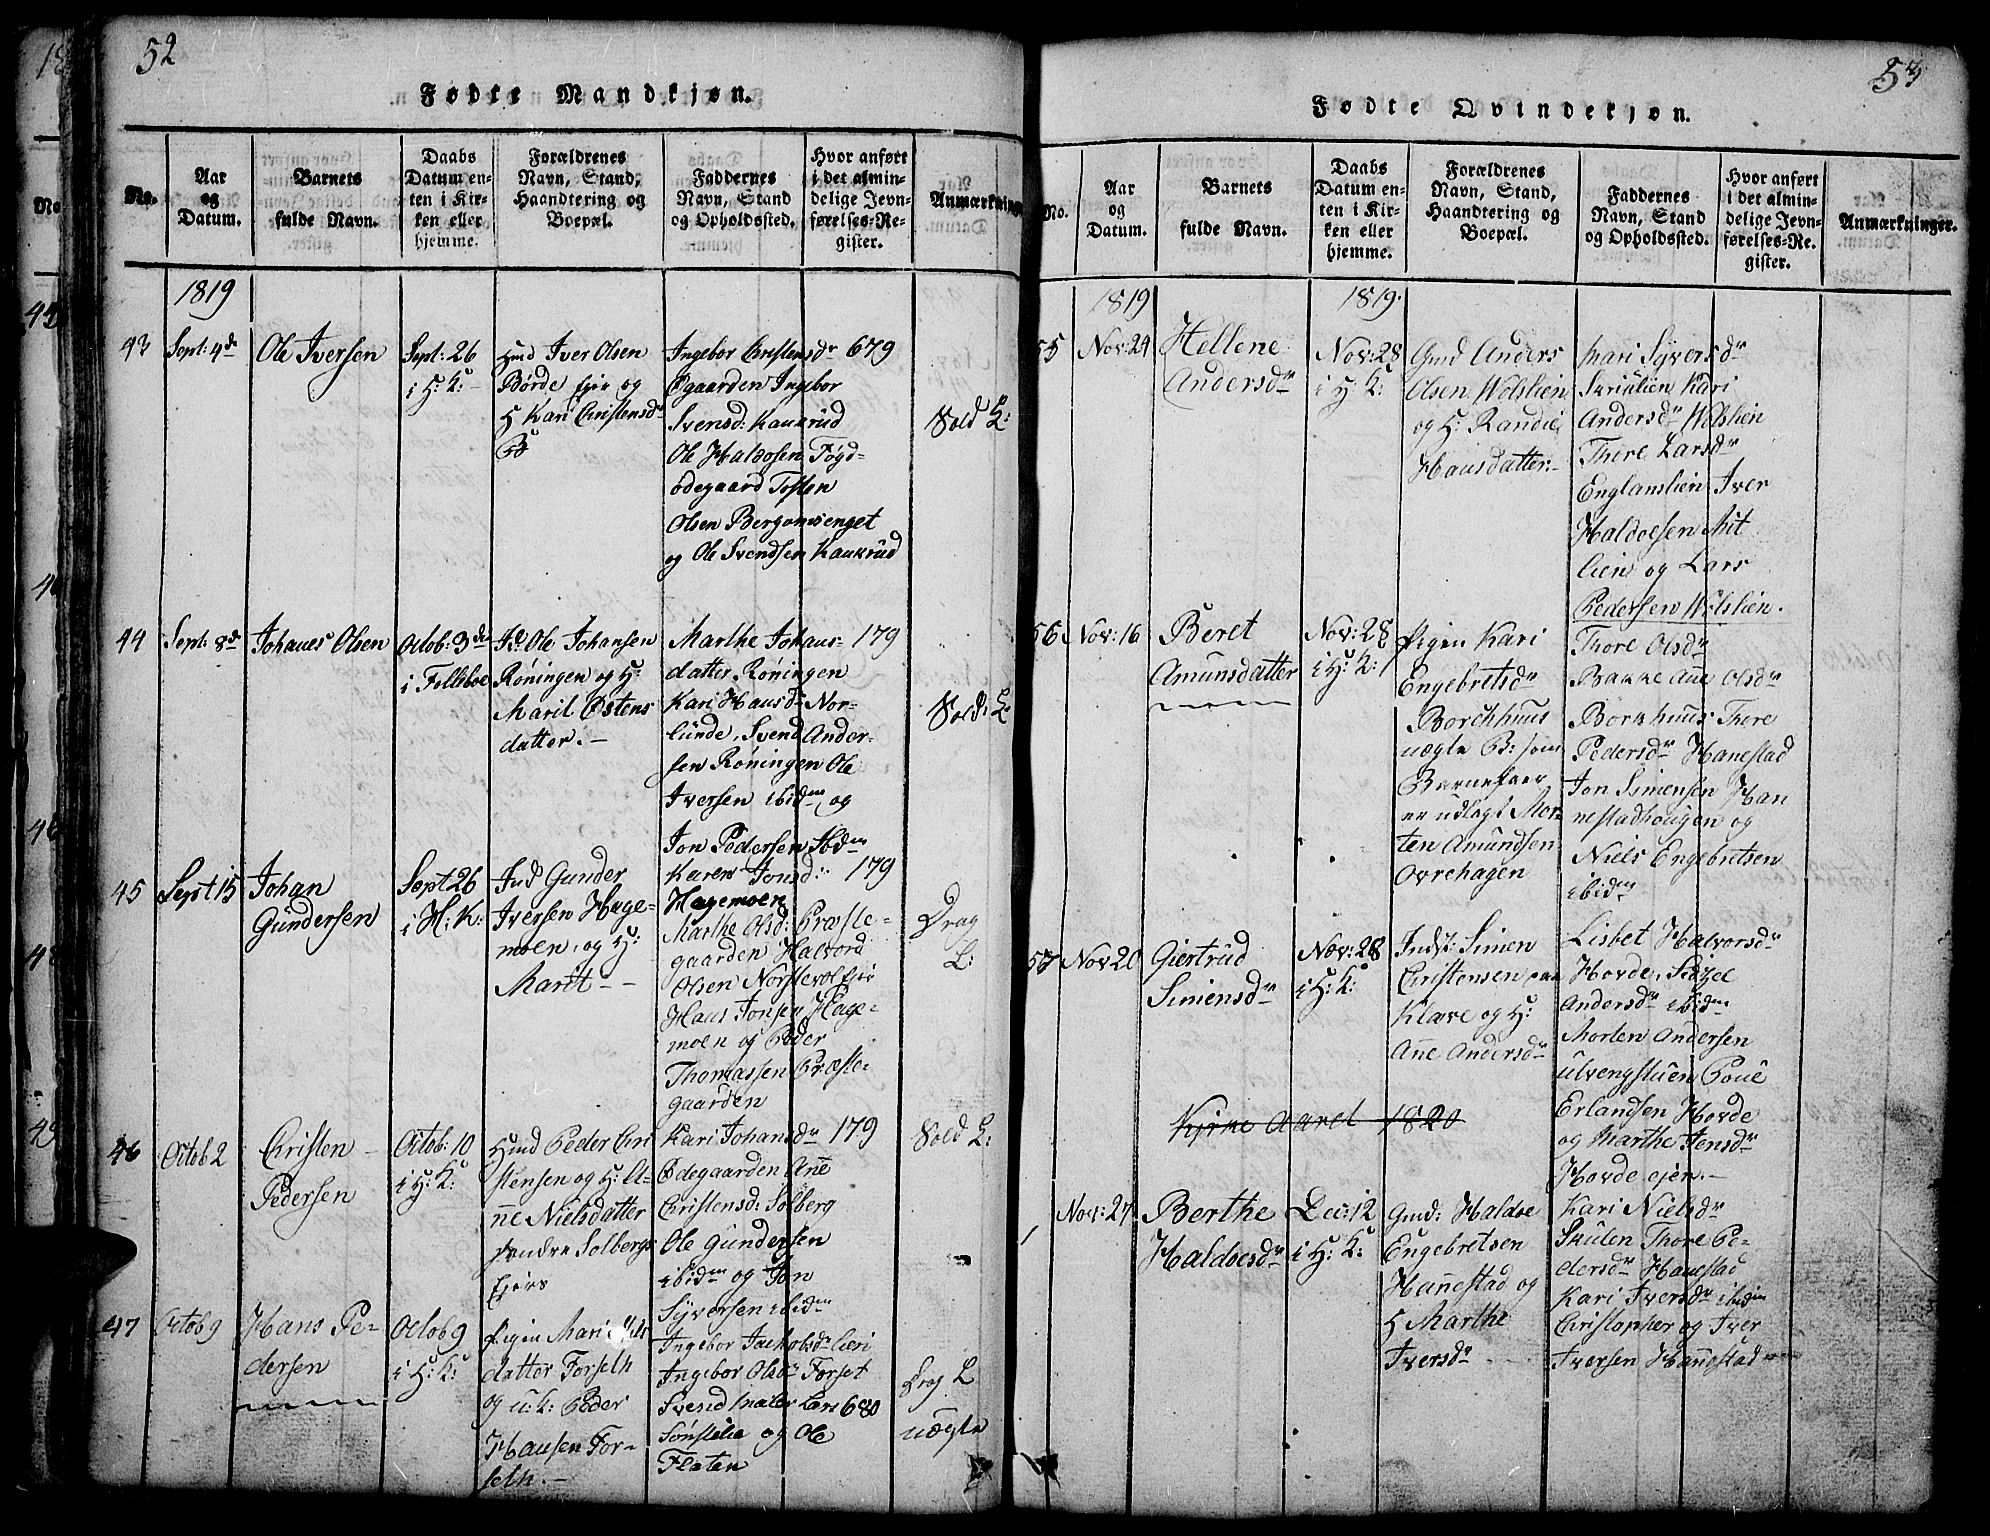 52
Fødte Mandkjøn.
No.
Aar
og
Datum.
Barnets
fulde Navn.
Daabs
Datum en-
ten i Kir-
ken eller
hjemme.
Forældrenes
Navn, Stand,
Haandtering og
Boepæl.
Faddernes
Navn, Stand
og Opholdssted.
Hvor anført
i det almin-
delige Jevn-
førelses-Re-
gister.
Anmærkning
1819
43
Sept: 4de
Ole Iversen
Sept: 26
i H: K:
Huusd Iver Olsen
Børde Ejer og
H Kari Christensdr
Ingebor Christensdr
Øgaarden Ingebor
Svensd: Kaukrud
Ole Haldosen Fögd-
ødegaard Tosten
Olsen Bergomsenget
og Ole Svendsen Kaukrud
679
Vold L:
44
Sept: 8de
Johanes Olsen
Octob: 3de
i Filleboe
Ole Johansen
Røningen og H:
Marit Østens
datter.-
Marthe Johans-
datter Røningen
Kari Hansd: Nor-
lunde, Svend Ander-
sen Røningen Ole
Iversen ibidm og
Jon Pedersen Ibdm
179
Vold: L
45
Sept 15
Johan
Gundersen
Sept 26
i H: K:
Ind Gunder
Iversen Hage-
moen, og H:
Marit -
Karen Jonsd:
Hagemoen
Marthe Olsd: Præste-
gaarden Halvord
Olsen Norstevold ejer
Hans Jonsen Hage-
moen og Peder
Thomassen Præste-
gaarden
179
Drag
L:
46
Octob 2
Christen
Pedersen
Octob: 10
i H: K:
Huusd Peder Chri
stensen og H: A-
ne Nielsdatter
søndre Solbergs
Ejers
Kari Johansdr
Ødegaarden Ane
Christensd: Solberg
Ole Gundersen
ibidm og Jon
Syversen ibidm
179
Vold L:
47
Octob 9
Hans Pe-
dersen
Octob 9
i H: K:
Pigen Mari Nils
datter Forseth
og u: k: Peder
Hansen For-
seth.-
Ingebor Jachobsdr Lien
Ingebor Olsdr Forset
Svend Lars
Sønstelie og Ole
Flaten
680
Drag L
uægte
53
Fødte Qvindekjøn.
No.
Aar
og
Datum.
Barnets
fulde Navn.
Daabs
Datum en-
ten i Kir-
ken eller
hjemme.
Forældrenes
Navn, Stand,
Haandtering og
Boepæl.
Faddernes
Navn, Stand
og Opholdssted.
Hvor anført
i det almin-
delige Jevn-
førelses-Re-
gister.
Anmærkninger.
1819
1819.
55
Nov: 24
Hellene
Andersdr
Nov: 28
i H: K:
Gmd Anders
Olsen Wolslien
og H: Randie
Hansdatter:-
Mari Syversdr
Skrialien Kari
Andersdr Wolslien
Thore Larsdr
Englanslien Iver
Haldoesen Mit
lien og Lars
Pedersen Wolslien.
56
Nov: 16
Beret
Amunsdatter
Nov: 28
i H: K:
Pigen Kari
Engebretsdr
Borchhuus
uægte B: som
Barnefaer
er udlagt Mor-
ten Amundsen
Ovrehagen
Thore Olsdr
Bakke Ane Olsdr
Borkhuus Thore
Pedersdr Hanestad
Jon Simensen Han
nestadhougen og
Niels Engebretsen
ibidm
57
Nov 20
Giertrud
Simensdr
Nov: 28
i H: K:
Indst: Simen
Christensen paa
Klæve og H:
Ane Andersdr
Lisbet Halvorsdr
Hovde, Sidzel
Andersdr ibidm
Morten Andersen
Ulvengstuen Poul
Erlandsen Hovde
og Marthe Jensdr
Hovde ejen.-
Kirke Aaret 1820
1
Nov: 27
Berthe
Haldoesdr
Dec: 12
i H: K:
Gmd: Haldoe
Engebretsen
Hanestad og
H Marthe
Iversdr
Kari Nielsdr
Skulen Thore Pe-
dersdr Hanestad
Kari Iversdr ibidm
Christopher og Iver
Iversen Hanestad